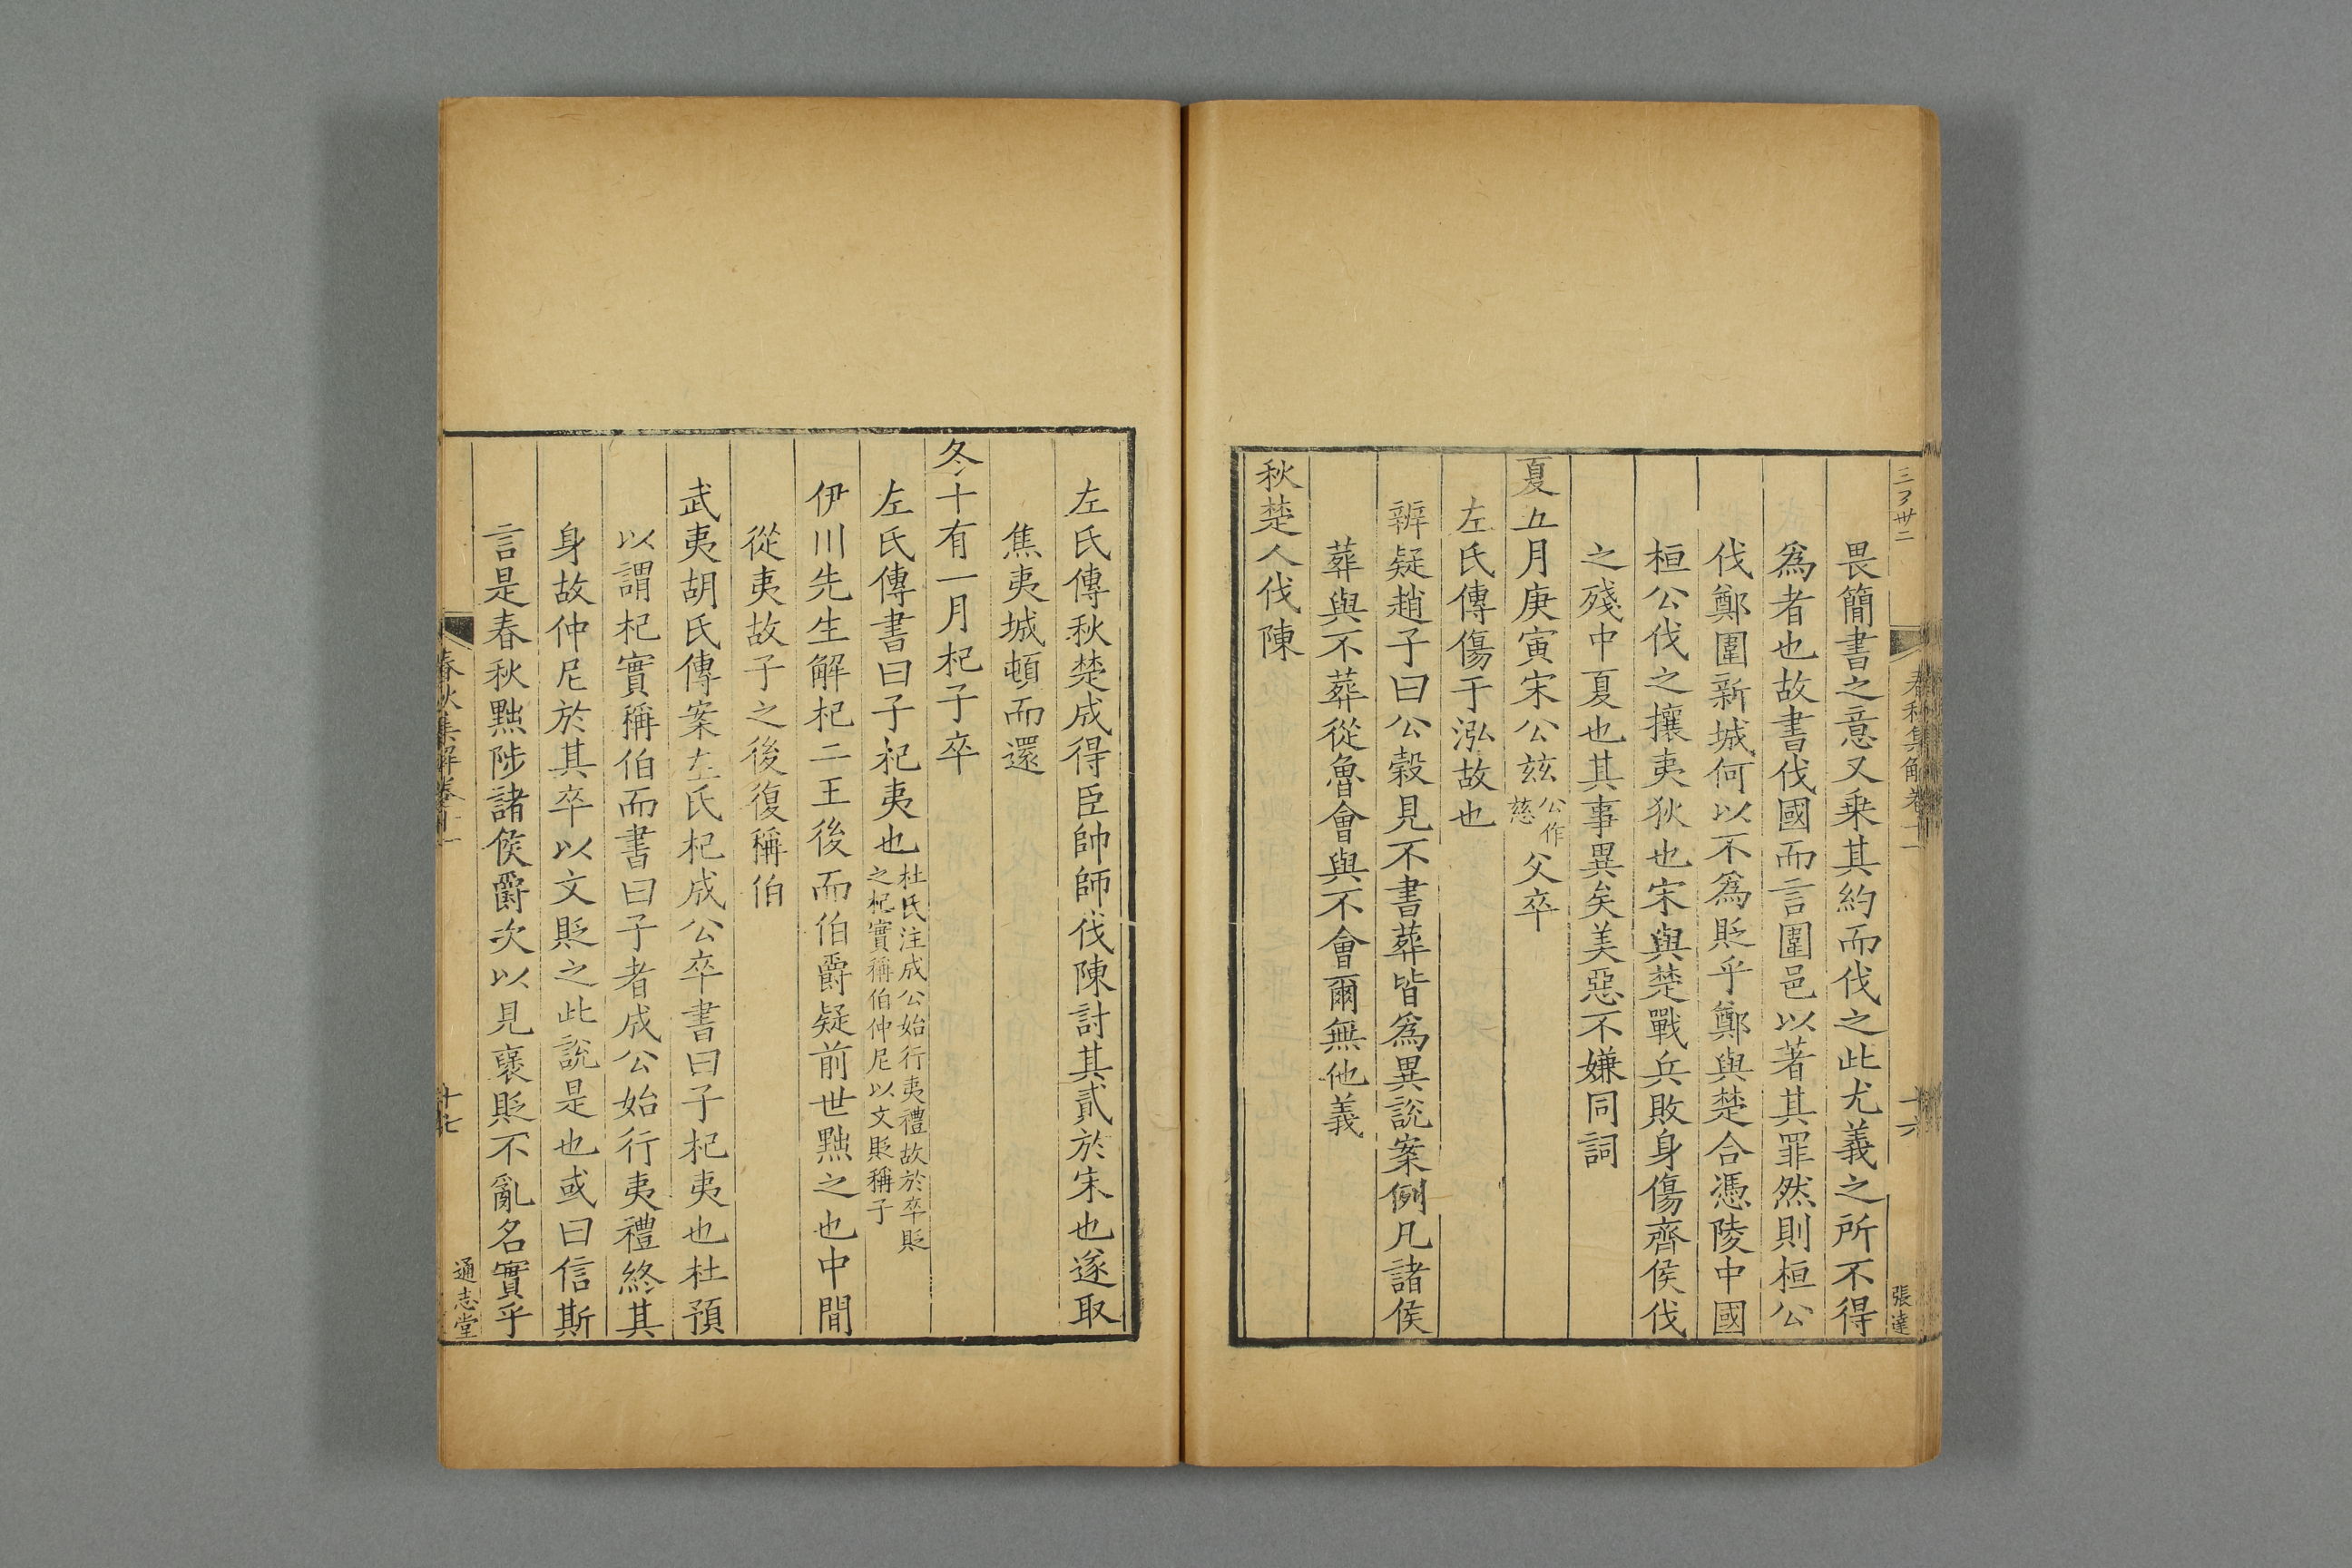 三百卅二
春秋集解卷十一
十六
張達
畏簡書之意又乗其約而伐之此尤義之所不得
爲者也故書伐國而言圍邑以著其罪然則桓公
伐鄭圍新城何以不爲貶乎鄭與楚合憑陵中國
桓公伐之攘夷狄也宋與楚戰兵敗身傷齊侯伐
之殘中夏也其事異矣美惡不嫌同詞
夏五月庚寅宋公兹公作慈父卒
左氏傳傷于泓故也
辨疑趙子曰公穀見不書葬皆爲異說案例凡諸侯
葬與不葬從魯會與不會爾無他義
秋楚人伐陳
左氏傳秋楚成得臣帥師伐陳討其貳於宋也遂取
焦夷城頓而還
冬十有一月杞子卒
左氏傳書曰子杞夷也杜氏注成公始行夷禮故於卒貶之杞實稱伯仲尼以文貶稱子
伊川先生解杞二王後而伯爵疑前世黜之也中間
從夷故子之後復稱伯
武夷胡氏傳案左氏杞成公卒書曰子杞夷也杜預
以謂杞實稱伯而書曰子者成公始行夷禮終其
身故仲尼於其卒以文貶之此說是也或曰信斯
言是春秋黜陟諸侯爵次以見襃貶不亂名實乎
春秋集解卷十一
十七
通志堂